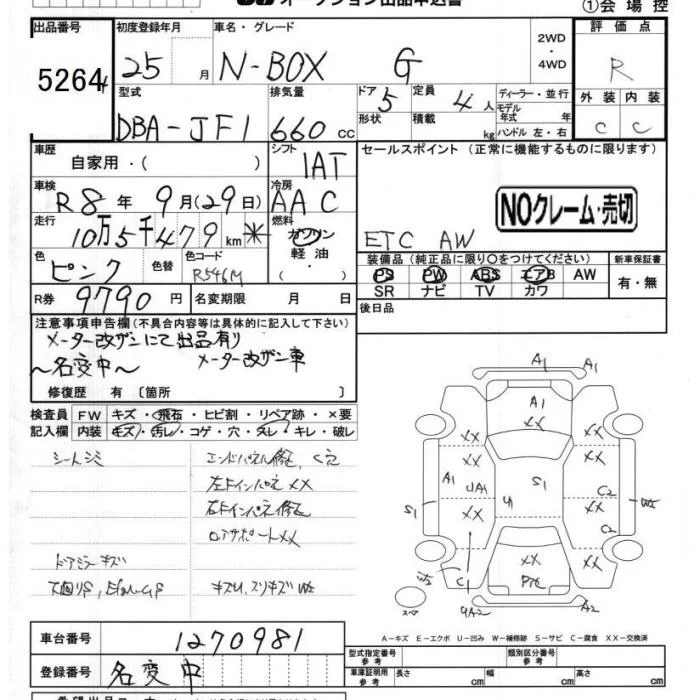 オークション出品申込書
①会場控
出品番号 初度登録年月 車名・グレード 2WD ・ 4WD 評価点
5264 25 月 N-BOX G R
型式 排気量 ドア 5 定員 4人 ディーラー・並行 外装 内装
DBA-JF1 660 cc 形状 積載 kg モデル年式 年 C C
ハンドル 左・右
車歴 自家用・( ) シフト 1AT セールスポイント (正常に機能するものに限ります)
車検 R8年 9月(29日) 冷房 AAC NOクレーム・売切
走行 10万5千479 km ※ 燃料 ガソリン 軽油 ・( ) ETC AW
色 ピンク 色替 色コード R546M 装備品 (純正品に限り○をつけてください) 新車保証書
PS PW ABS エアB AW 有・無
SR ナビ TV カワ
R券 9790円 名変期限 月 日 後日品
注意事項申告欄(不具合内容等は具体的に記入して下さい)
メーター改ザンにて出品有り
~名変中~ メーター改ザン車
修復歴 有 〔箇所 〕
検査員 FW キズ・飛石・ヒビ割・リペア跡・×要
記入欄 内装 キズ・汚レ・コゲ・穴・スレ・キレ・破レ
シートシミ エンドパネル修正
左Fインパネ XX
右Fインパネ修正
ロアサポート XX
ドアミラーキズ
キズU,スリキズW2
A1 A1
A1
XX XX
XX XX
A1 UA1 U S1 C2
S1 XX XX W2
XX C2
W2 C1 XX XX
スペ UA2 A2
車台番号 1270981
A-キズ E-エクボ U-凹み W-補修跡 S-サビ C-腐食 XX-交換済
登録番号 名変中
型式指定番号 参考 類別区分番号 参考
車庫証明用 参考 長さ cm 幅 cm 高さ cm